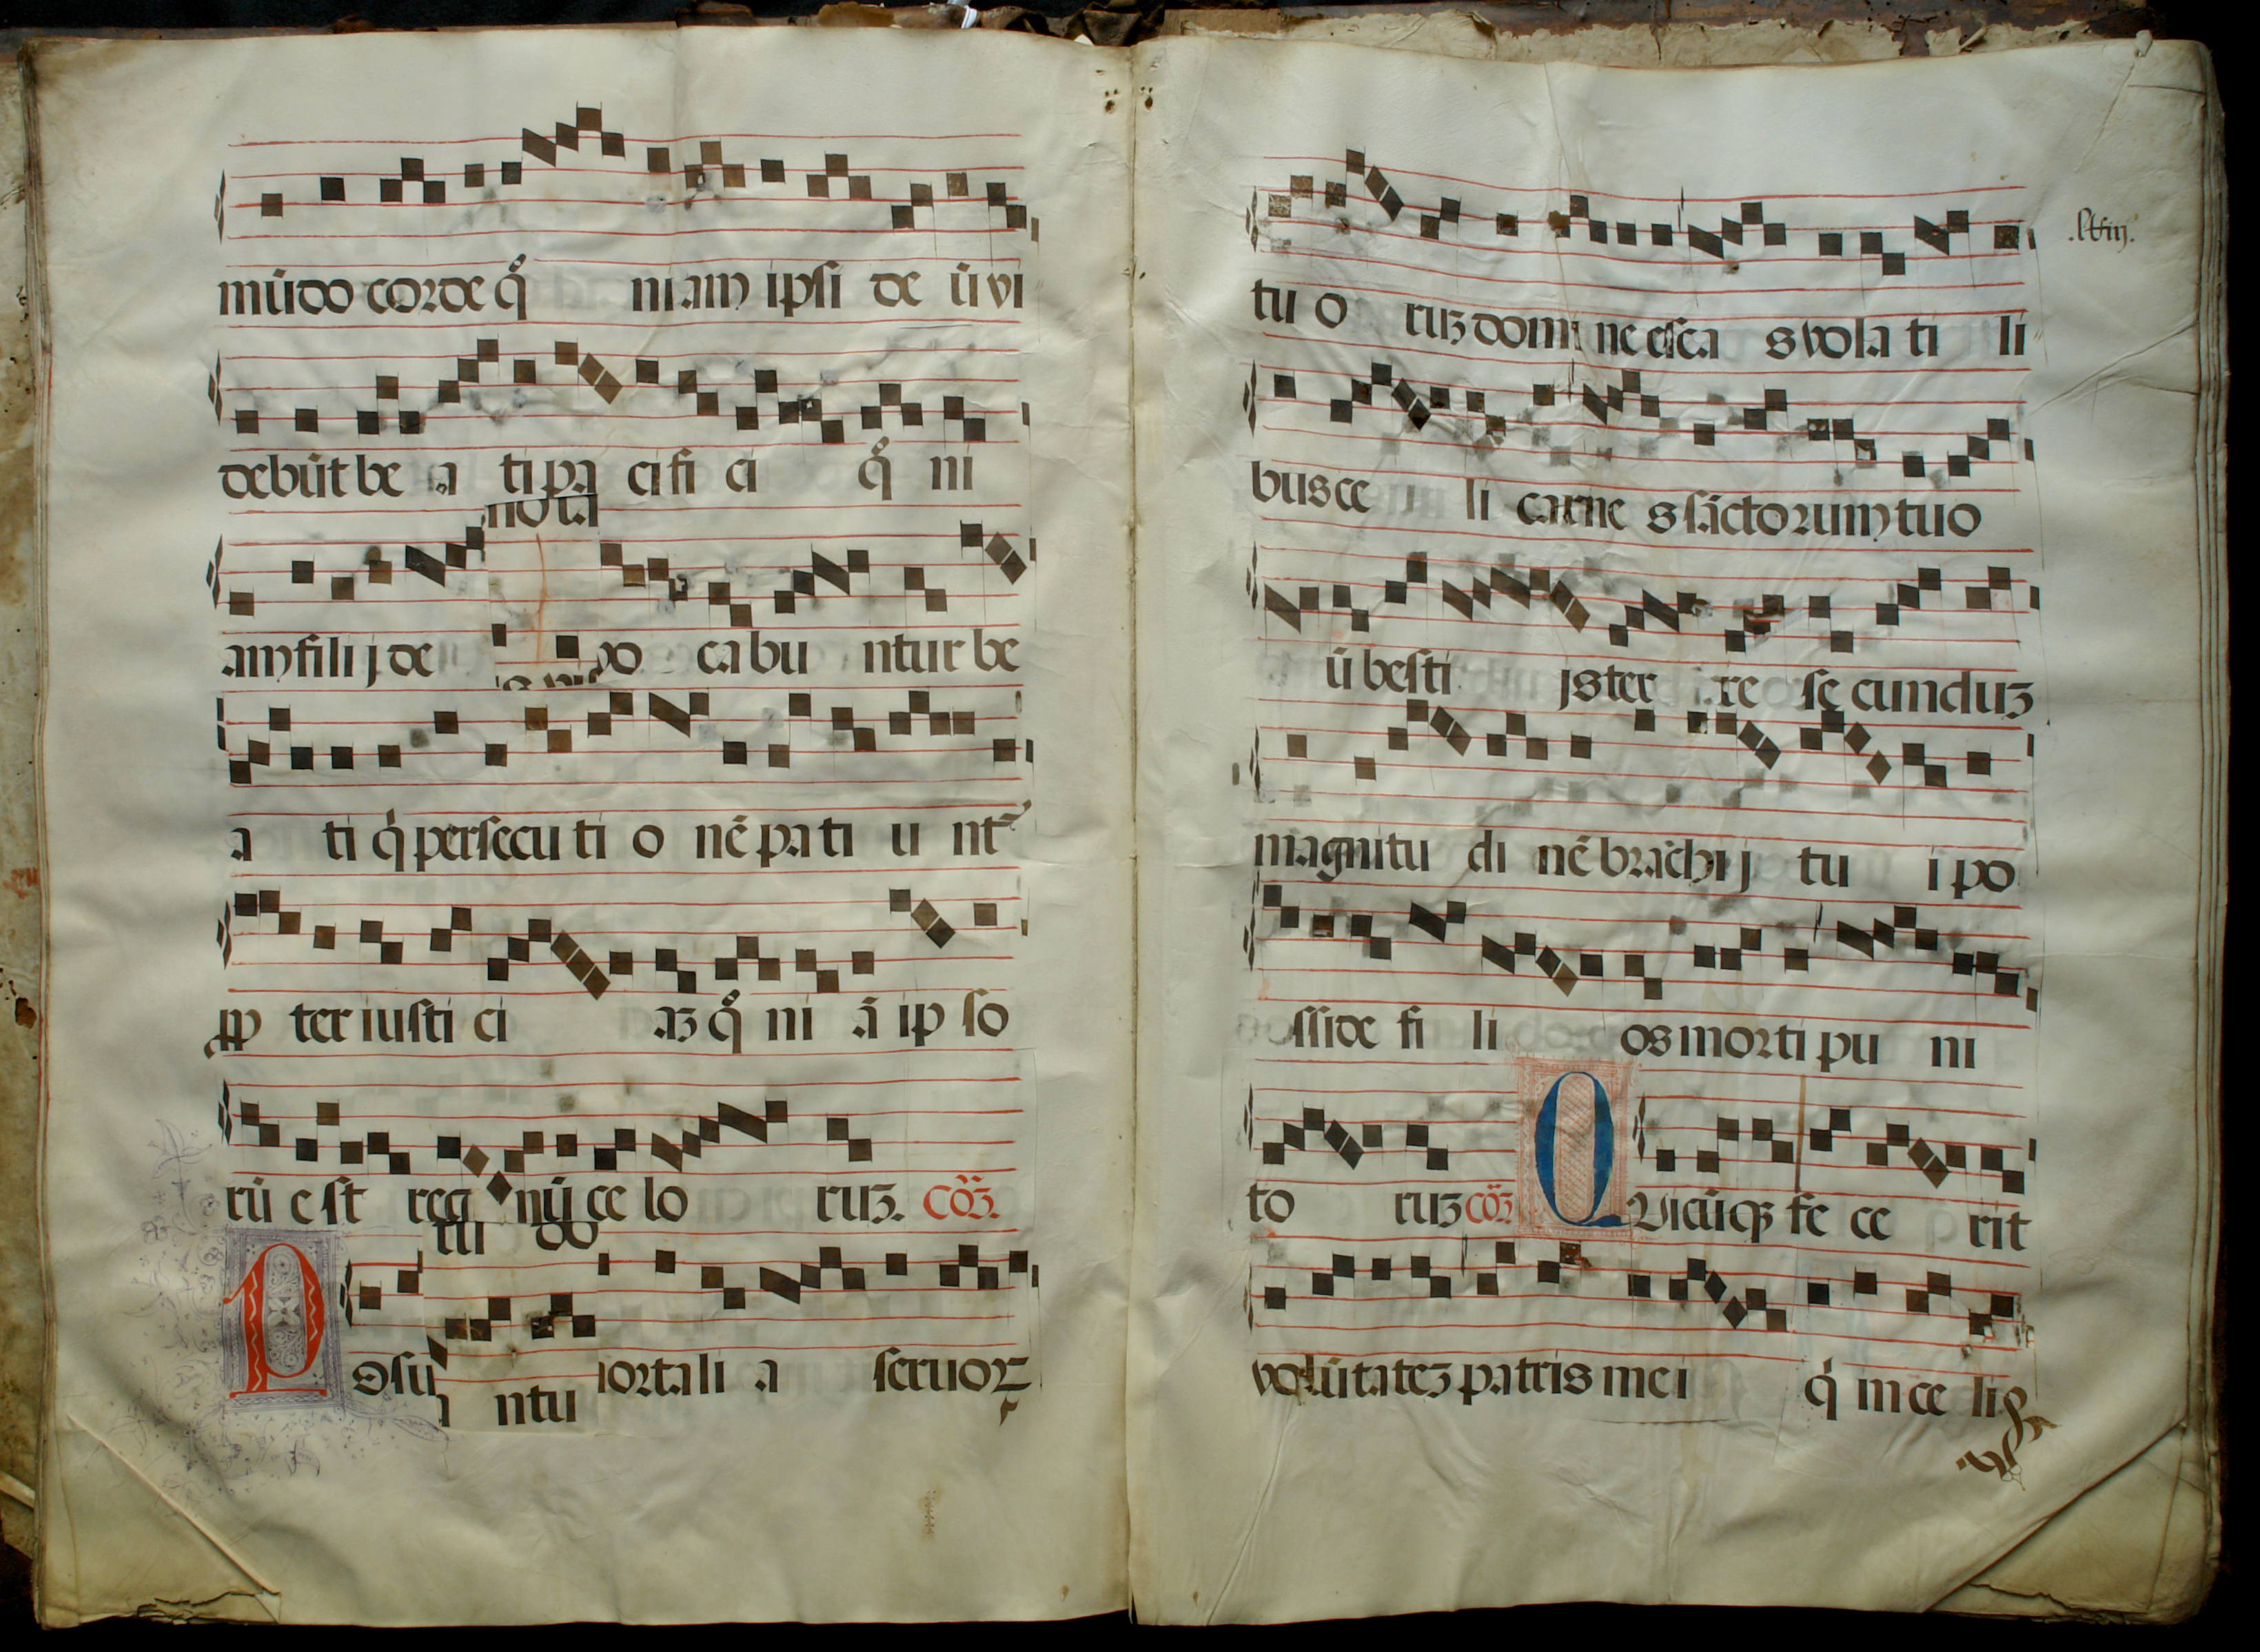 mūdo corde qͦ niam ipsi de ū vi
debūt be a ti pa ci fi ci qͦ ni
nota
am fili j de vo ca bu ntur be
a ti q̇ persecu ti o nē pa ti u nt᷑
ꝓp ter iusti ci aꝫ qͦ ni ā ip so
rū e st reg nū ce lo ruꝫ. cōꝫ.
tu do
P osu ortali a seruoꝝ
ntu
.lviij.
tu o ruꝫ domi ne esca s vola ti li
bus ce li carne s sāctorum tuo
ū besti js ter re se cunduꝫ
magnitu di nē brāchi j tu i po
sside fi li os morti pu ni
to ruꝫ cōꝫ Q uicūqꝫ fe ce rit
volūtateꝫ patris mei q̇ in ce lis